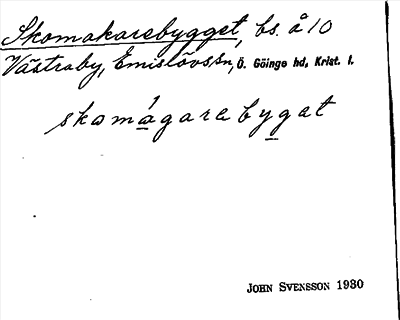 Skomakarebygget, bs. å 10
Västraby, Emislövs sn, Ö. Göinge hd, Krist. l.
skomágarebygat
JOHN SVENSSON 1930